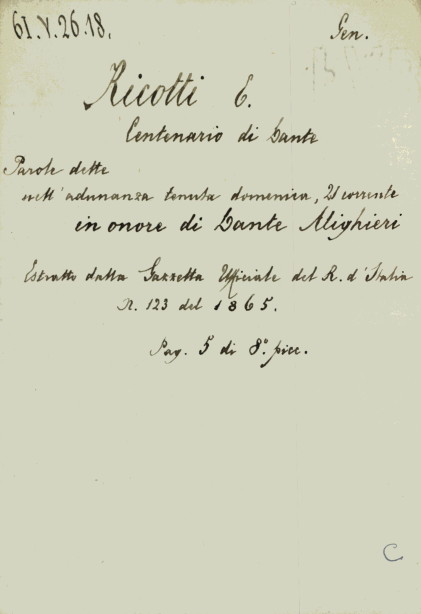 61.V.26.18.
Gen.
Ricotti E.
Centenario di Dante
Parole dette
nell'adunanza tenuta domenica, 21 corrente
in onore di Dante Alighieri
Estratto dalla Gazzetta Ufficiale del R. d'Italia
N. 123 del 1865.
Pag. 5 di 8.° picc.
C